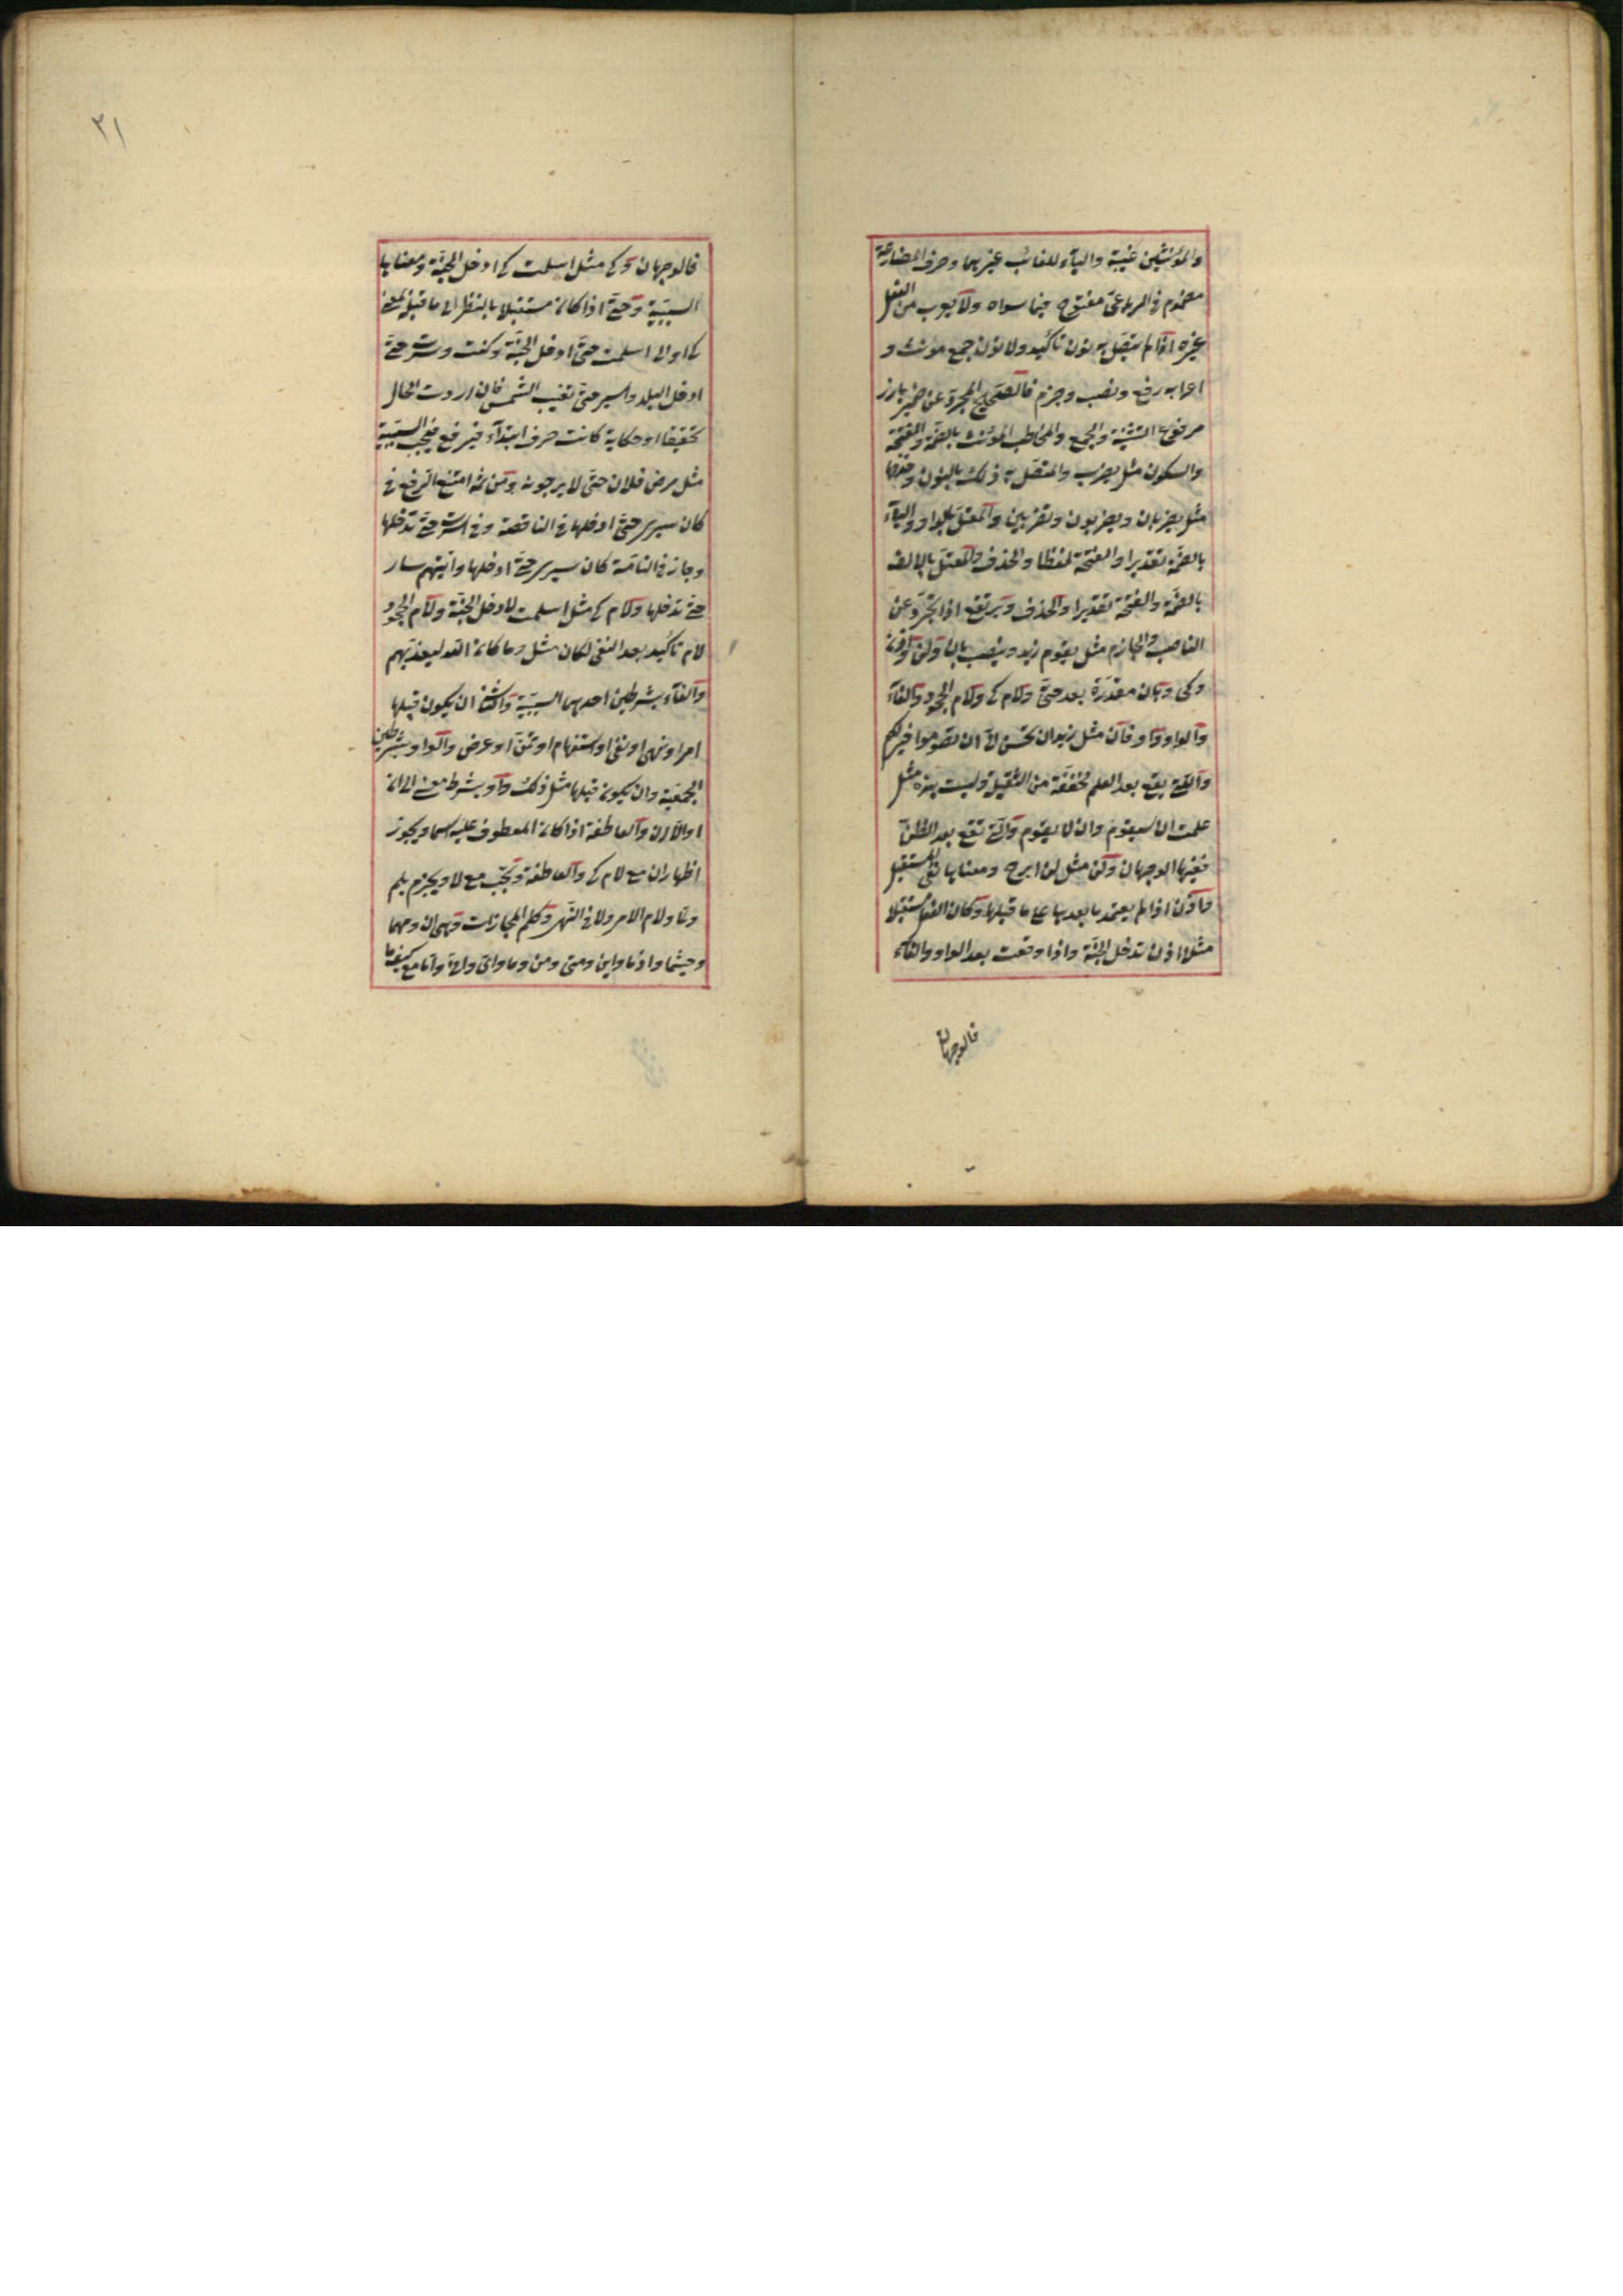 والمؤنثين غيبة والياء للغائب غيرهما وحرف المضارعة
مضموم في الرباعي مفتوح فيما سواه ولا يعرب من الفعل
غيره اذا لم يتصل به نون تأكيد ولا نون جمع مونث و
اعرابه رفع ونصب وجزم فالصحيح المجرد عن ضمير بارز
مرفوع التثنية والجمع والمخاطب المؤنث بالضمة والفتحة
والسكون مثل يضرب والمتصل به ذلك بالنون وحذفها
مثل يضربان ويضربون وتضربين والمعتل بالواو والياء
بالضمة تقديرا والفتحة لفظا والحذف والمعتل بالالف
بالضمة والفتحة تقديرا والحذف ويرتفع اذا تجرد عن
الناصب والجازم مثل يقوم زيد وينصب بان ولن واذن
وكى وبان مقدرة بعد حتى ولام كى ولام الجحود والفاء
والواو واو فان مثل زيد ان تحسن لى ان تصوموا خير لكم
والتى يقع بعد العلم مخففة من الثقيلة وليست هذه مثل
علمت ان سيقوم وان لا يقوم والتى تقع بعد الظن
ففيها الوجهان ولن مثل لن ابرح ومعناها نفى المستقبل
واذن اذا لم يعتمد ما بعدها على ما قبلها وكان الفعل مستقبلا
مثل اذن تدخل الجنة واذا وقعت بعد الواو والفاء
فالوجهان
٣١
فالوجهان وكى مثل اسلمت كى ادخل الجنة ومعناها
السببية وحتى اذا كان مستقبلا بالنظر الى ما قبله بمعنى
كى او الى اسلمت حتى ادخل الجنة وكنت سرت حتى
ادخل البلد واسير حتى تغيب الشمس فان اردت الحال
تحقيقا او حكاية كانت حرف ابتداء فيرفع فيجب السببية
مثل مرض فلان حتى لا يرجونه ومن ثم امتنع الرفع فى
كان سيرى حتى ادخلها فى الناقصة وفى اسرت حتى تدخلها
وجاز فى التامة كان سيرى حتى ادخلها وايهم سار
حتى تدخلها ولام كى مثل اسلمت لادخل الجنة ولام الجحود
لام تاكيد بعد النفى لكان مثل وما كان الله ليعذبهم
والفاء بشرطين احدهما السببية والثانى ان يكون قبلها
امر او نهى او نفى او استفهام او تمن او عرض والواو بشرطين
الجمعية وان يكون قبلها مثل ذلك واو بشرط معنى الى ان
او الا ان والعاطفة اذا كان المعطوف عليه اسما ويجوز
اظهار ان مع لام كى والعاطفة وتجب مع لا ويجزم بلم
ولما ولام الامر ولا فى النهى وكلم المجازات وهى ان ومهما
وحيثما واذما واين ومتى ومن وما واى وانى واما مع كيفما